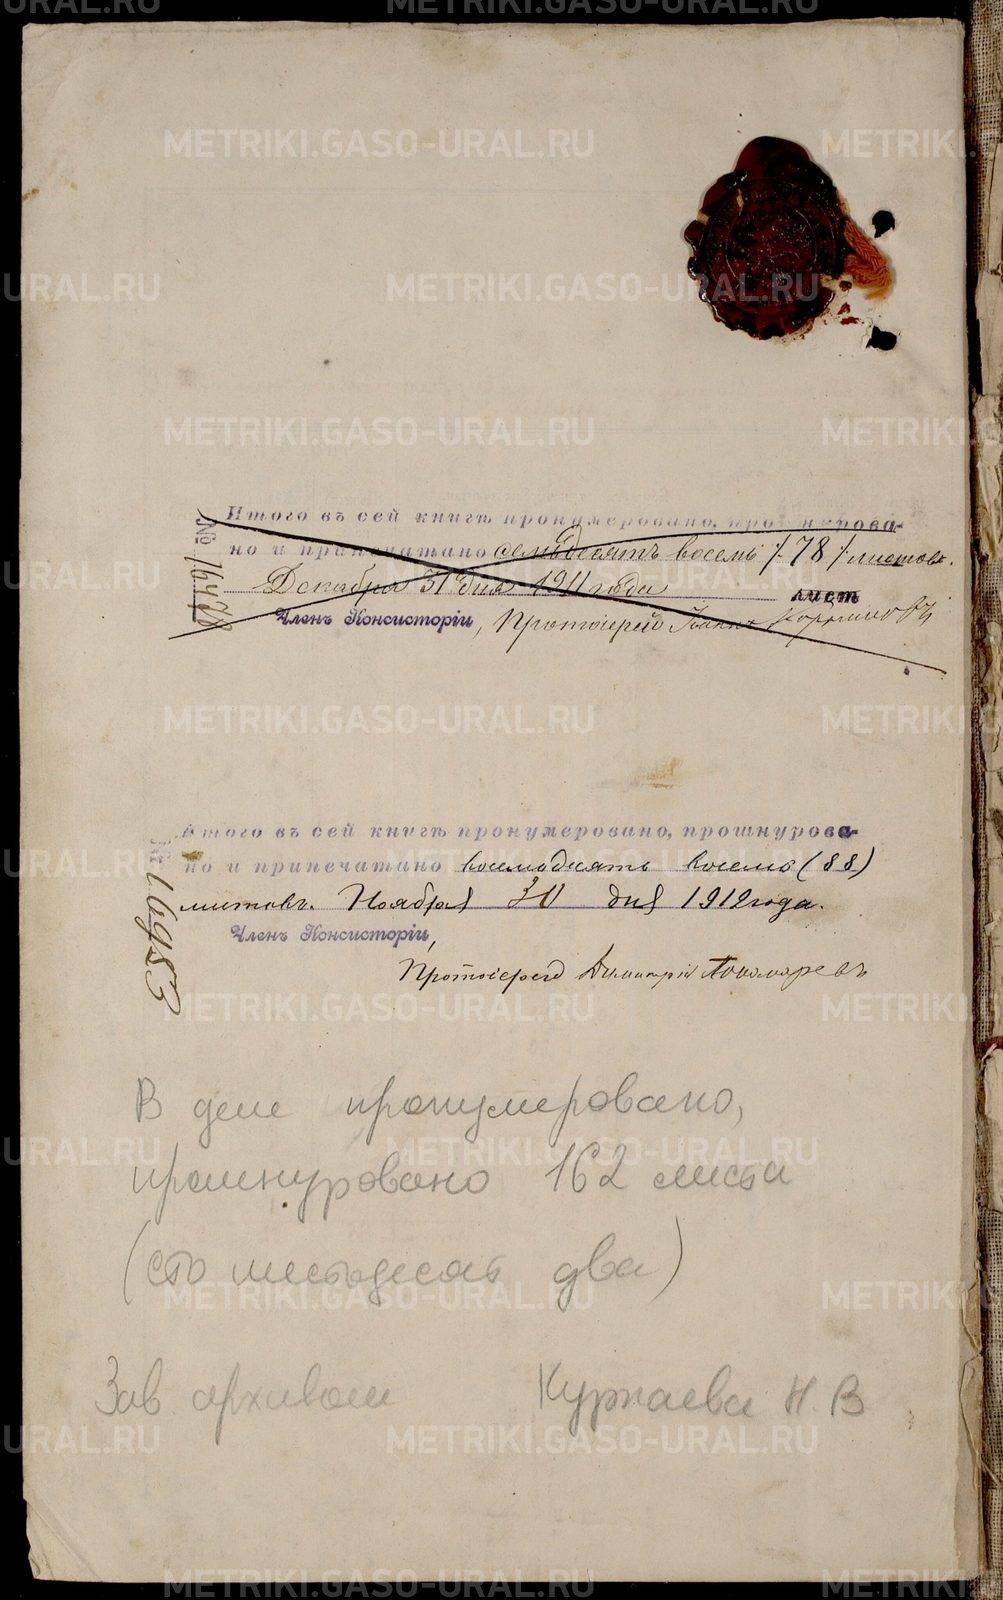 Итого въ сей книгѣ пронумеровано, про нурова-
но и припечатано семьдесятъ восемь /78/ листовъ.
Декабря 31 дня 1911 года листъ
Членъ Консисторіи, Протоіерей Іоаннъ
№
Итого въ сей книгѣ пронумеровано, прошнурова-
но и припечатано восемьдесятъ восемь (88)
листовъ. Ноября 30 дня 1912 года.
Членъ Консисторіи,
Протоіерей Димитрій Пономаревъ
№ 16983
В деле пронумеровано,
прошнуровано 162 листа
(сто шестьдесят два)
Зав. архивом Курпаева Н. В
METRIKI.GASO-URAL.RU